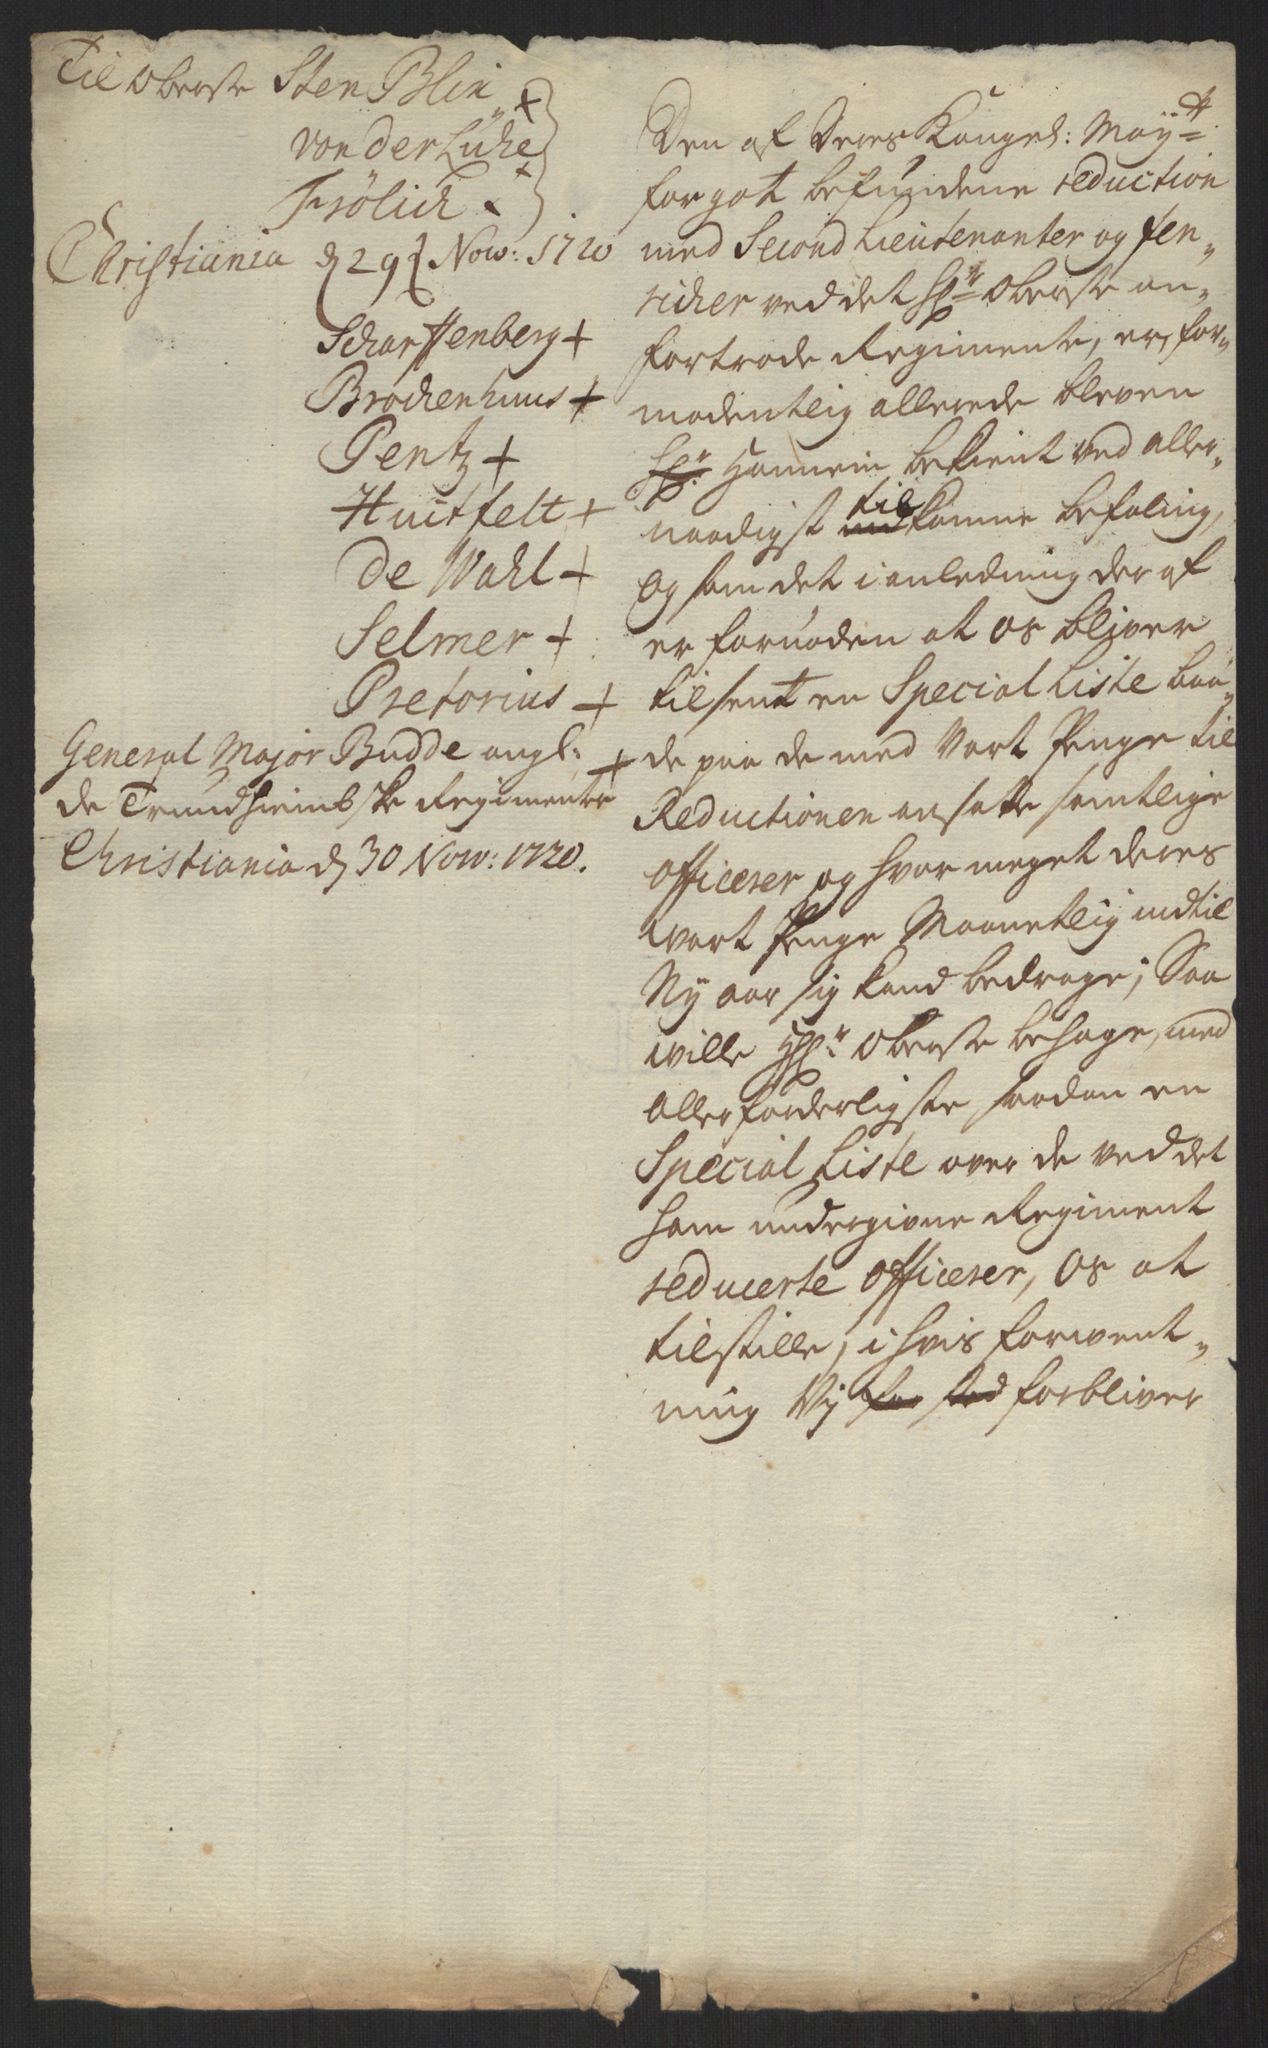 Til Oberste Sten Blix +
von der Lühe +
Frölich +
Christiania d 29 Nov: 1720
Scharffenberg +
Brochenhuus +
Pentz +
Huitfelt +
De Wahl +
Selmer +
Pretorius +
General Major Budde angl: +
de Trundhiembske Regimenter
Christiania d 30 Nov: 1720.
Den af Deres Kongel: Mayt
for got befundene reduction
med Second Lieutenanter og fen-
richer ved det Hr Oberste an-
fortrode Regimente, er, for-
modentlig allerede bleven
Hr Hannem bekient ved aller-
naadigst til komne befaling,
og som det i anledning der af
er fornøden at os bliver
tilsent en Special Liste baa-
de paa de med Vart Penge til
Reductionen ansatte samtlige
officerer og hvor meget deres
wart Penge Maanetlig indtil
Ny aar sig kand bedrage; Saa
wille Hr Oberste behage, med
allerforderligste saadan en
Special Liste over de ved det
ham undergivne Regiment
reducerte officerer, os at
tilstille, i hvis forwent-
ning Vi for sted forbliver